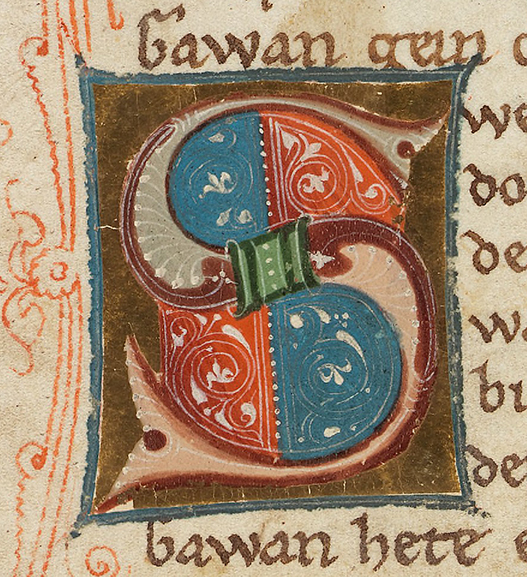 Gawan gein
S
we
do
de
wa
bi
de
Gawan hete